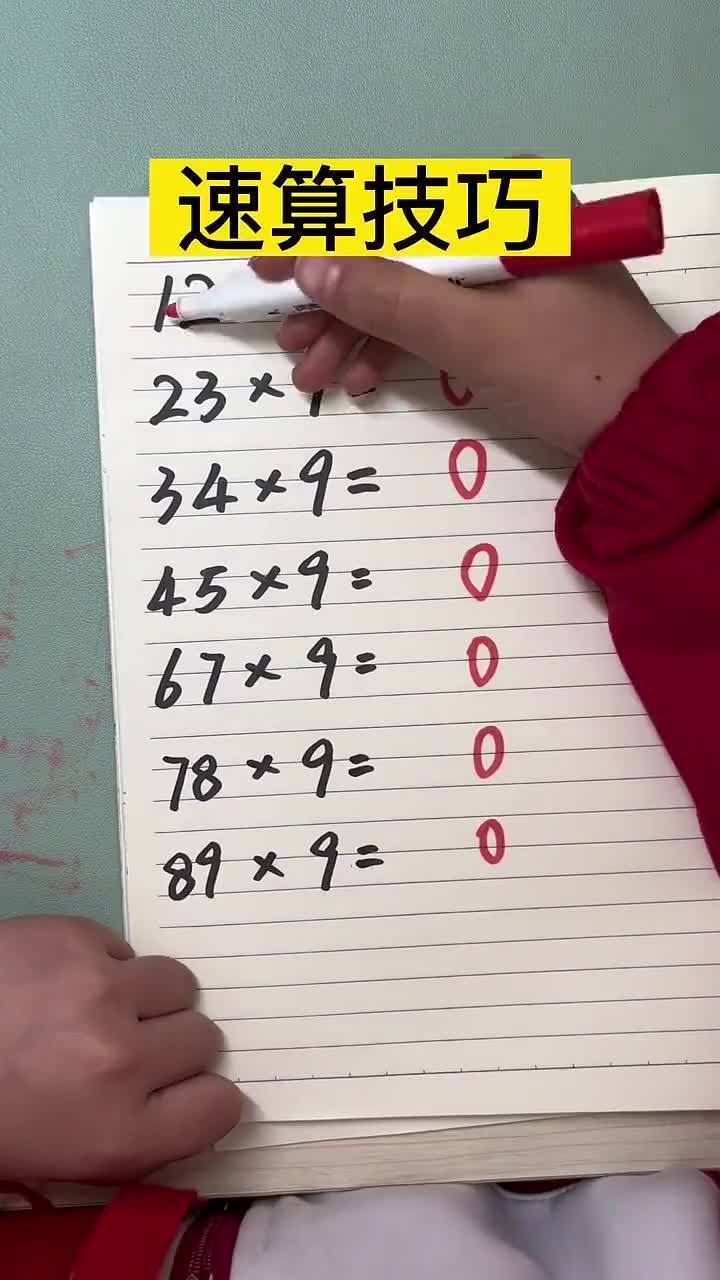 速算技巧
12
23×9= 0
34×9= 0
45×9= 0
67×9= 0
78×9= 0
89×9= 0